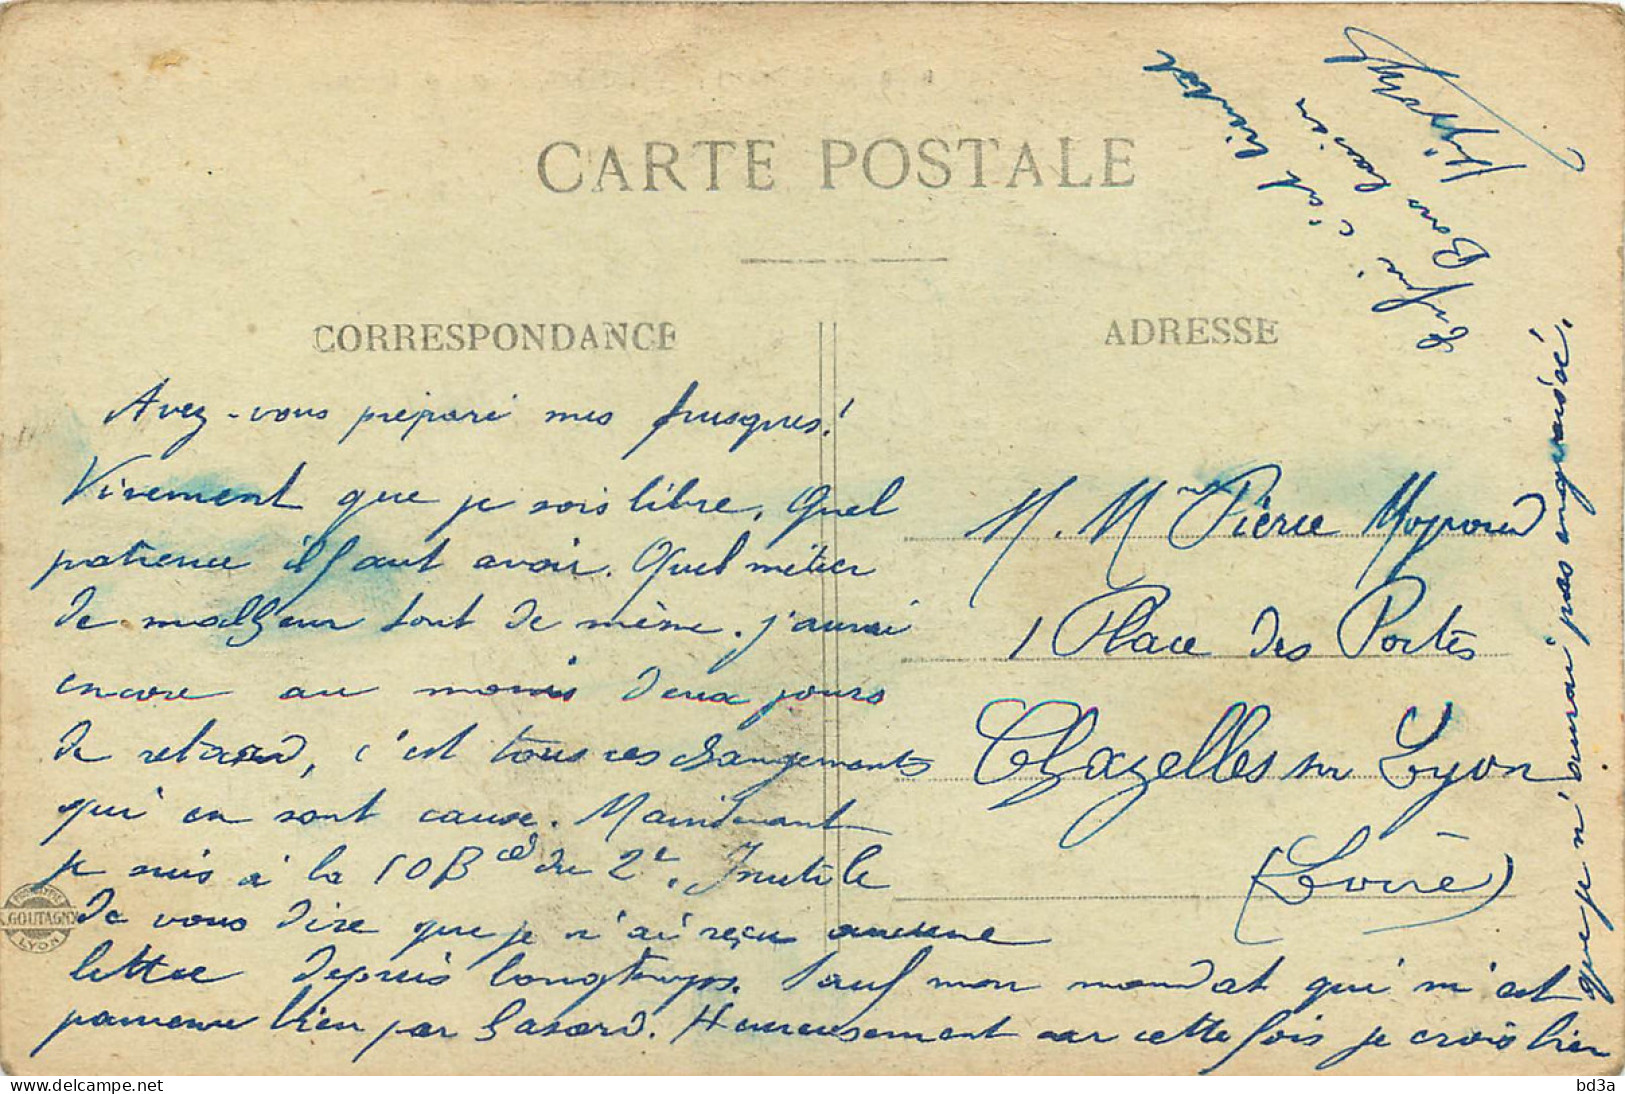 CARTE POSTALE
CORRESPONDANCE
ADRESSE
Avez-vous préparé mes frusques!
Vivement que je sois libre. Quel
patience il faut avoir. Quel métier
de malheur tout de même. j'aurai
encore au moins deux jours
de retard, c'est tous ces changements
qui en sont cause. Maintenant
je suis à la 10 Bie du 2e. Inutile
de vous dire que je n'ai reçu aucune
lettre depuis longtemps. Sauf mon mandat qui m'est
parvenu bien par hasard. Heureusement car cette fois je crois bien
que je n'aurai pas engraissé.
Enfin c'est bientôt
Bons baisers
M. Mme Pierre
1 Place des Portes
Chazelles sur Lyon
(Loire)
PHOTOTYPIE
GOUTAGNY
LYON
delcampe.net
bd3a